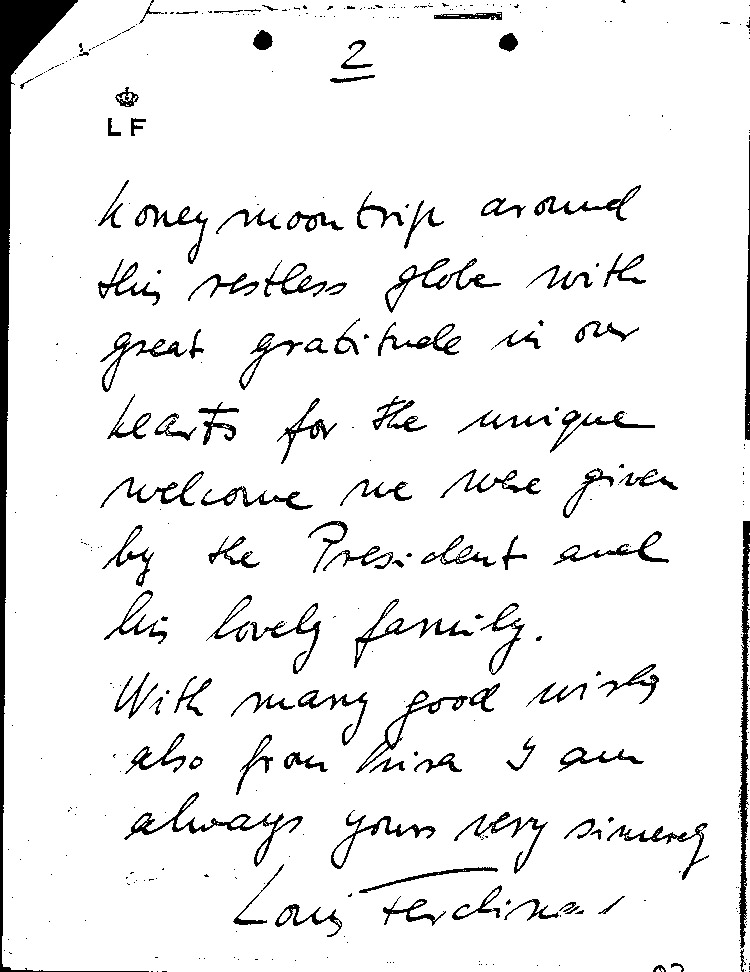 2
L F
honeymoon trip around
this restless globe with
great gratitude in our
hearts for the unique
welcome we were given
by the President and
his lovely family.
With many good wishes
also from Kira I am
always yours very sincerely
Louis Ferdinand